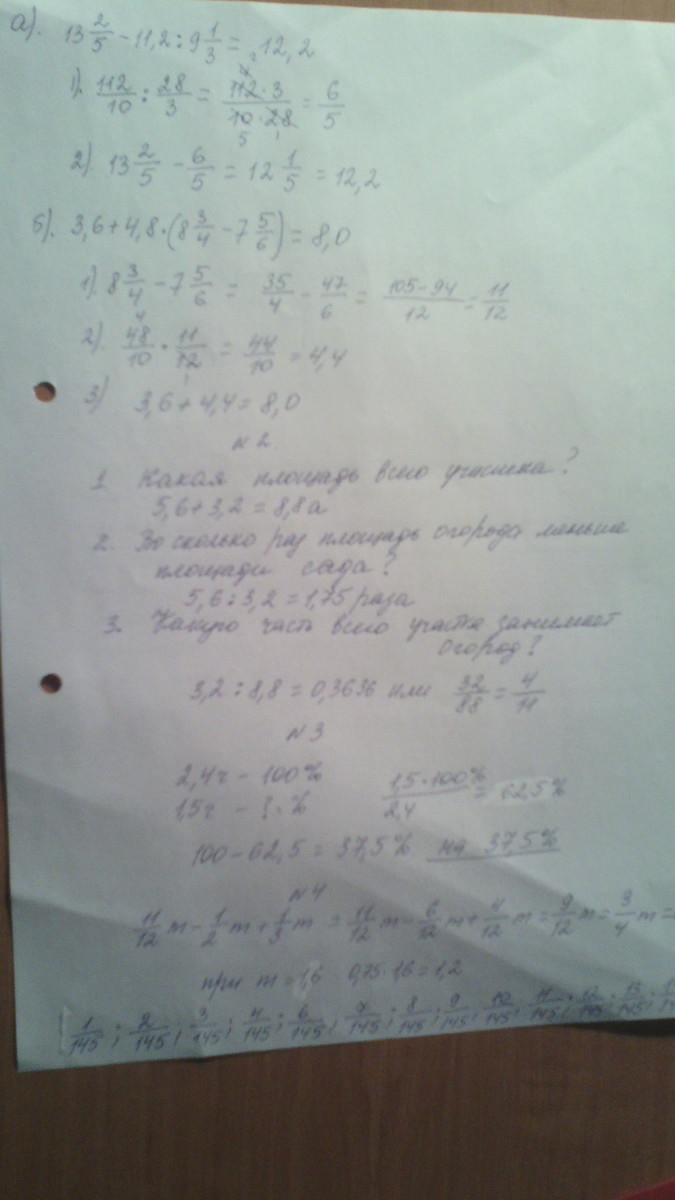 а). 13 2/5 - 11,2 : 9 1/3 = 12,2
1). 112/10 : 28/3 = 112·3/10·28 = 6/5
2). 13 2/5 - 6/5 = 12 1/5 = 12,2
б). 3,6 + 4,8 · (8 3/4 - 7 5/6) = 8,0
1). 8 3/4 - 7 5/6 = 35/4 - 47/6 = 105-94/12 = 11/12
2). 48/10 · 11/12 = 44/10 = 4,4
3) 3,6 + 4,4 = 8,0
N 2.
1 Какая площадь всего участка?
5,6 + 3,2 = 8,8 а
2. Во сколько раз площадь огорода меньше
площади сада?
5,6 : 3,2 = 1,75 раза
3. Какую часть всего участка занимает
огород?
3,2 : 8,8 = 0,3636 или 32/88 = 4/11
N 3
2,4 ч - 100%
1,5 ч - ? %   1,5·100%/2,4 = 62,5%
100 - 62,5 = 37,5% на 37,5%
N 4
11/12 m - 1/2 m + 1/3 m = 11/12 m - 6/12 m + 4/12 m = 9/12 m = 3/4 m =
при m = 1,6 0,75·1,6 = 1,2
1/145 ; 2/145 ; 3/145 ; 4/145 ; 6/145 ; 7/145 ; 8/145 ; 9/145 ; 10/145 ; 11/145 ; 12/145 ; 13/145 ;